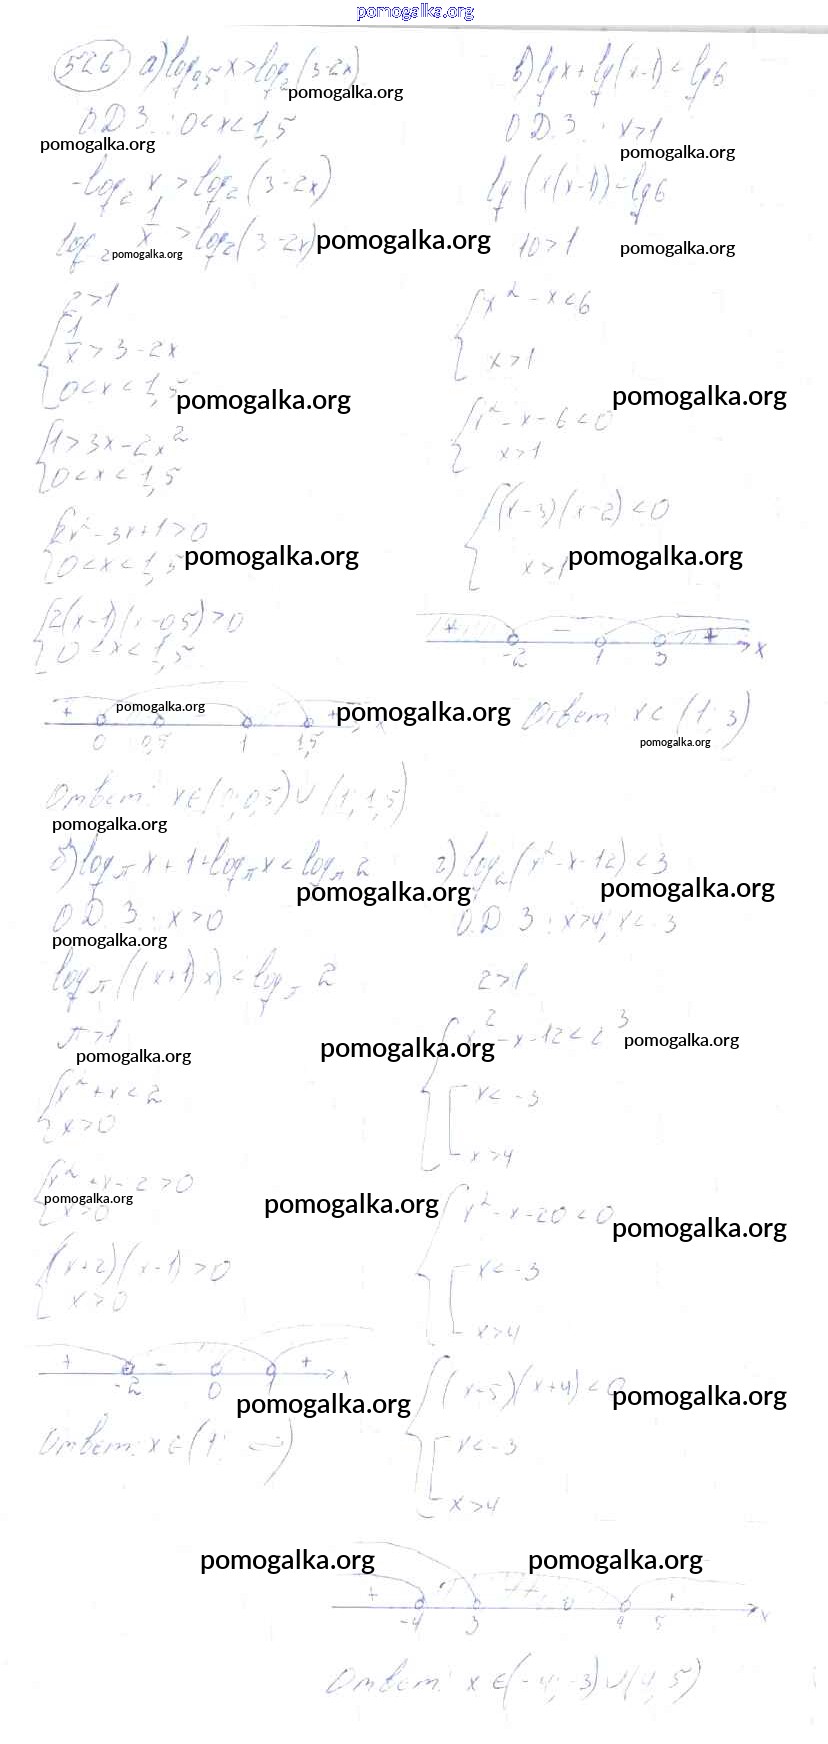 pomogalka.org
526 а) log₀,₅ x > log₂ (3-2x)
pomogalka.org
О.Д.З.: 0 < x < 1,5
pomogalka.org
-log₂ x > log₂ (3-2x)
log₂ 1/x > log₂ (3-2x)
pomogalka.org
pomogalka.org
2 > 1
1/x > 3-2x
0 < x < 1,5
pomogalka.org
1 > 3x - 2x²
0 < x < 1,5
2x² - 3x + 1 > 0
0 < x < 1,5
pomogalka.org
2(x-1)(x-0,5) > 0
0 < x < 1,5
pomogalka.org
pomogalka.org
+ - + x
0 0,5 1 1,5
Ответ: x ∈ (0; 0,5) ∪ (1; 1,5)
pomogalka.org
в) lg x + lg (x-1) < lg 6
О.Д.З.: x > 1
pomogalka.org
lg (x(x-1)) < lg 6
10 > 1
pomogalka.org
x² - x < 6
x > 1
pomogalka.org
x² - x - 6 < 0
x > 1
(x-3)(x-2) < 0
x > 1
pomogalka.org
+ - + x
-2 1 3
Ответ: x ∈ (1; 3)
pomogalka.org
б) log_π x + 1 + log_π x < log_π 2
pomogalka.org
О.Д.З.: x > 0
pomogalka.org
log_π ((x+1) x) < log_π 2
π > 1
pomogalka.org
pomogalka.org
x² + x < 2
x > 0
x² + x - 2 > 0
x > 0
pomogalka.org
pomogalka.org
(x+2)(x-1) > 0
x > 0
+ - + x
-2 0 1
pomogalka.org
Ответ: x ∈ (1; ∞)
г) log₂ (x² - x - 12) < 3
pomogalka.org
О.Д.З.: x > 4, x < -3
2 > 1
x² - x - 12 < 2³
pomogalka.org
x < -3
x > 4
x² - x - 20 < 0
pomogalka.org
x < -3
x > 4
(x-5)(x+4) < 0
pomogalka.org
x < -3
x > 4
pomogalka.org
pomogalka.org
+ + x
-4 3 4 5
Ответ: x ∈ (-4; -3) ∪ (4; 5)